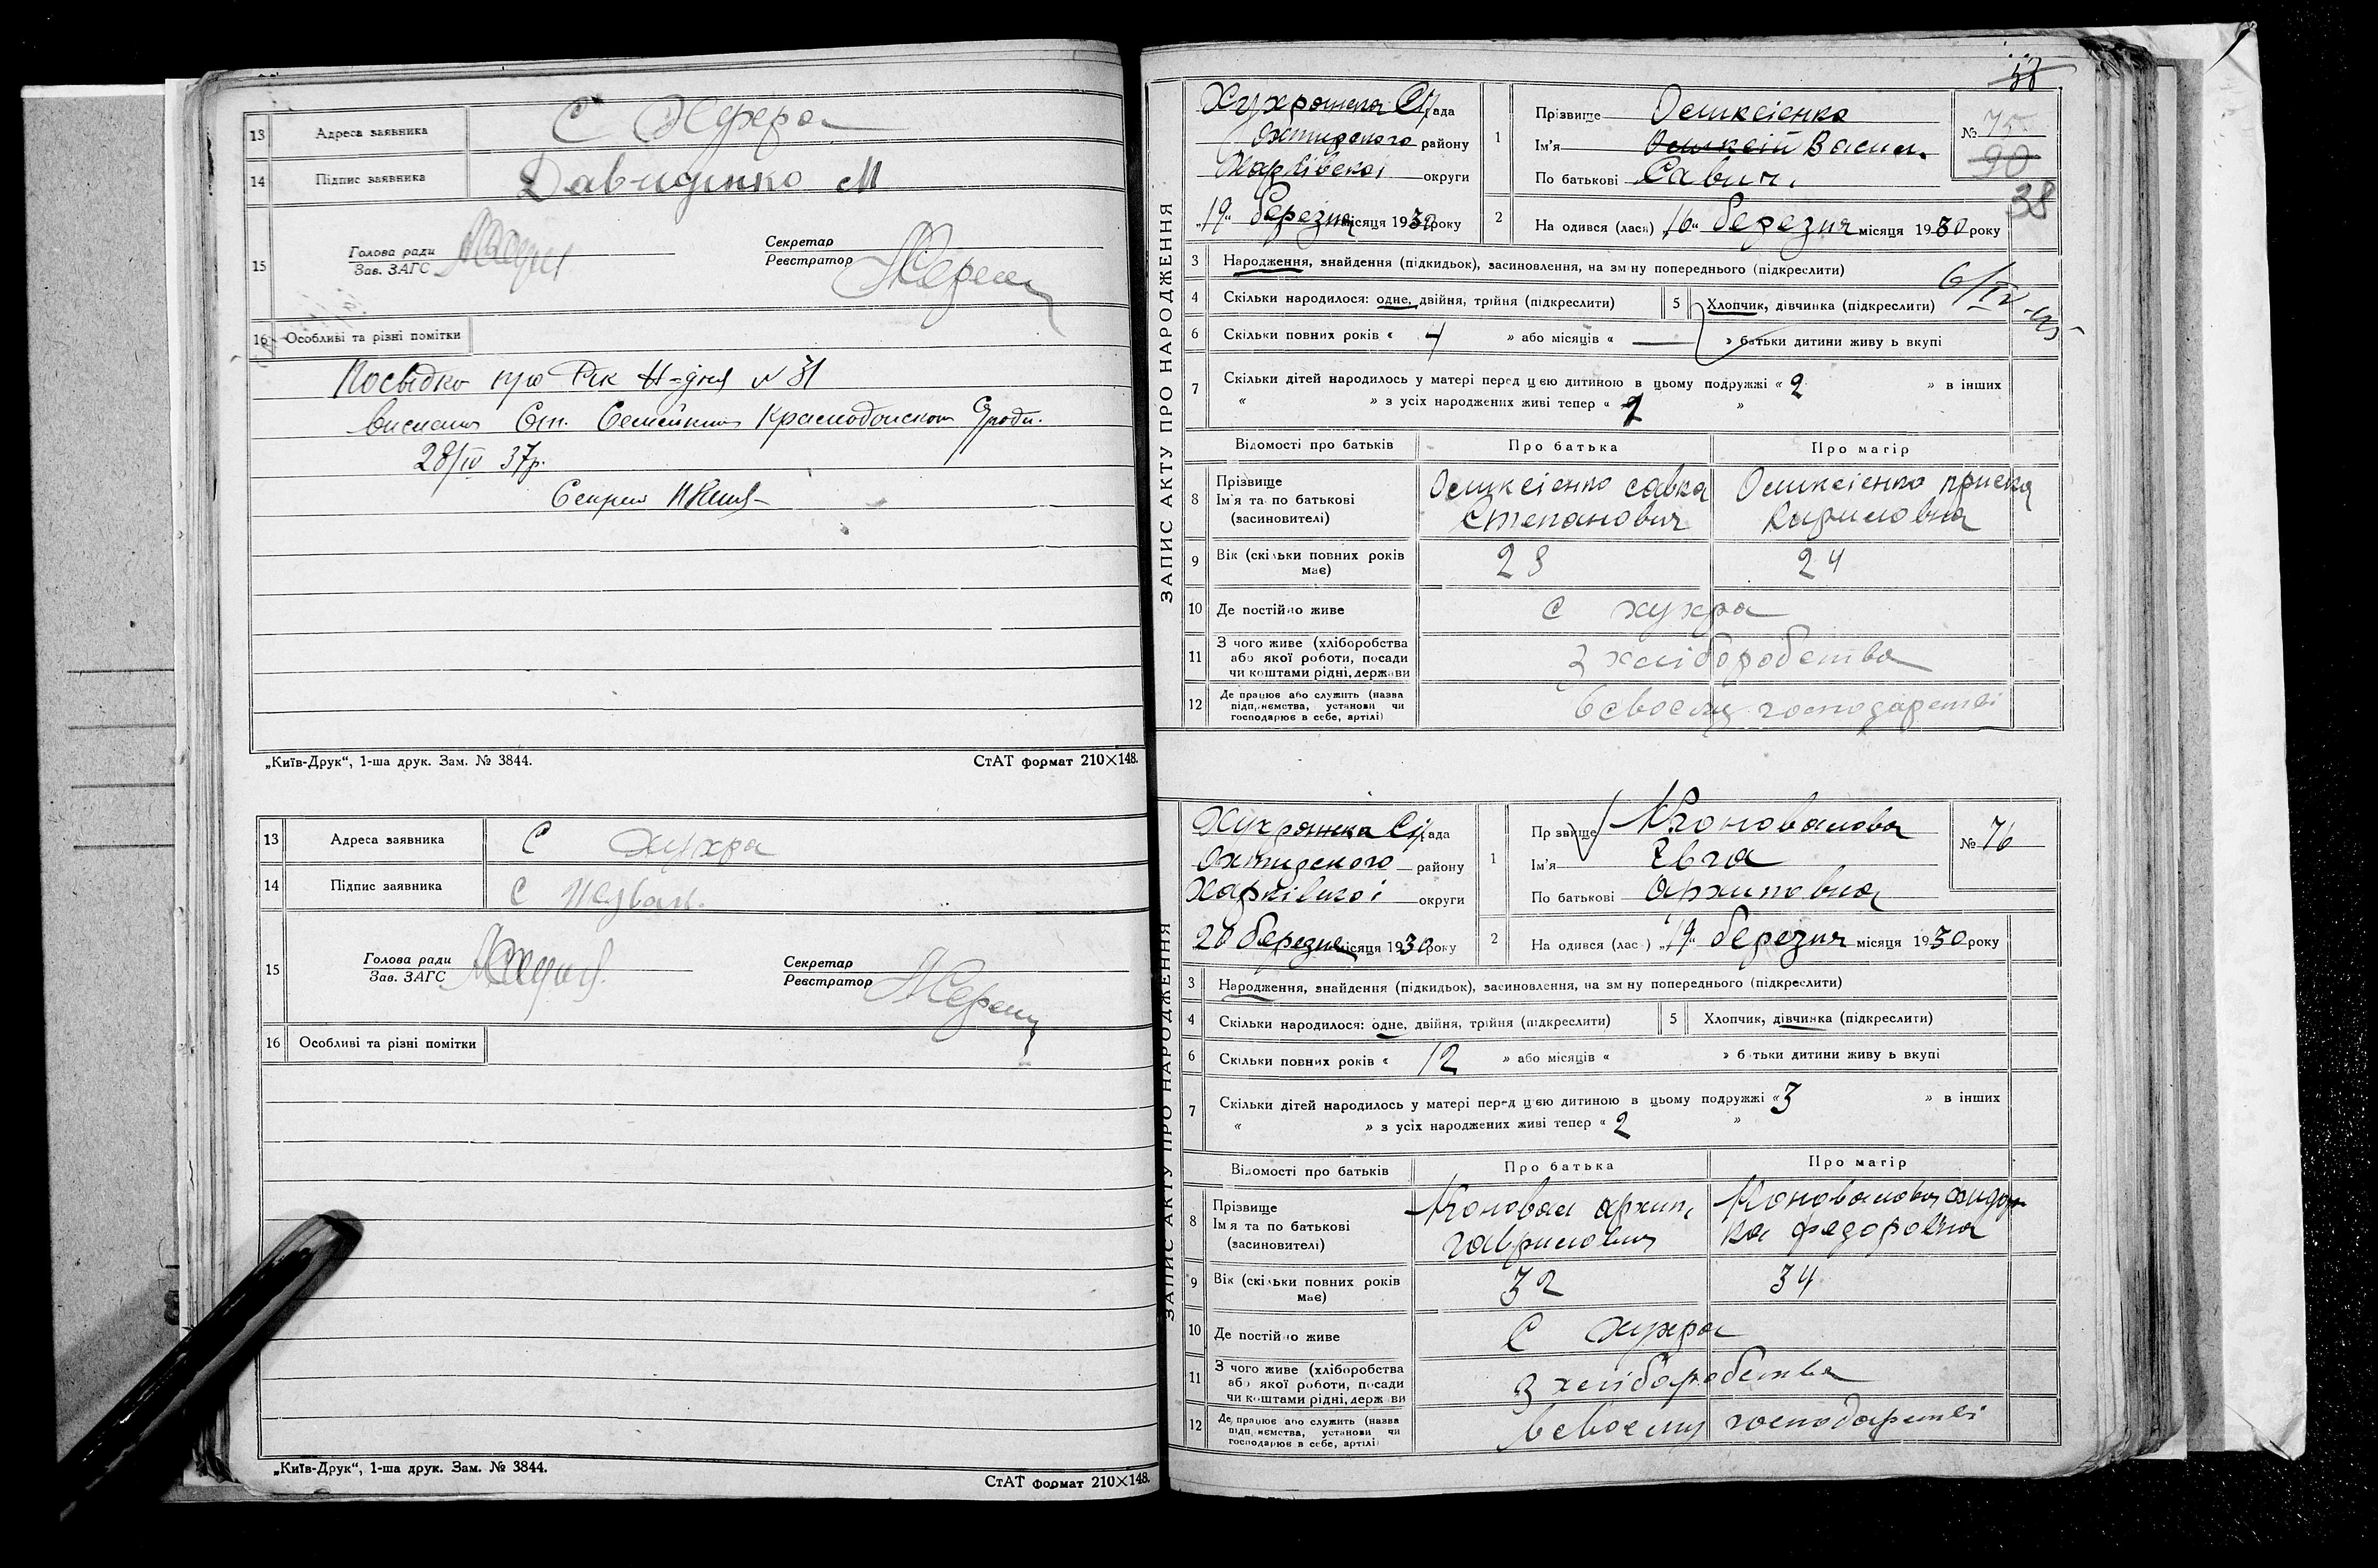 13 Адреса заявника С Хухра
14 Підпис заявника Давиденко М
15 Голова ради
Зав. ЗАГС
Секретар
Реєстратор
16 Особливі та різні помітки
Посвідко про Рік Н-дня № 31
28/IV 37р.
„Київ-Друк“, 1-ша друк. Зам. № 3844. СтАТ формат 210×148.
13 Адреса заявника С Хухра
14 Підпис заявника С
15 Голова ради
Зав. ЗАГС
Секретар
Реєстратор
16 Особливі та різні помітки
„Київ-Друк“, 1-ша друк. Зам. № 3844. СтАТ формат 210×148.
58
ЗАПИС АКТУ ПРО НАРОДЖЕННЯ
Хухрянська С/рада
Охтирского району
Харківскоі округи
„19“ березня місяця 1930 року
1 Прізвище Остксієнко
Ім'я Васил.
По батькові Савич.
№ 75
90
38
2 На одився (лась) „16“ березня місяця 1930 року
3 Народження, знайдення (підкидьок), засиновлення, на зміну попереднього (підкреслити)
4 Скільки народилося: одне, двійня, трійня (підкреслити)
5 Хлопчик, дівчинка (підкреслити)
6/IV-45
6 Скільки повних років « — » або місяців « — » батьки дитини живу ь вкупі
7 Скільки дітей народилось у матері перед цією дитиною в цьому подружжі « 2 » в інших
« » з усіх народжених живі тепер « 2 »
Відомості про батьків Про батька Про матір
8 Прізвище
Ім'я та по батькові
(засиновителі)
савка
Степанович
Приська
Кириловна
9 Вік (скільки повних років має) 28 24
10 Де постійно живе С хухра
11 З чого живе (хліборобства
або якої роботи, посади
чи коштами рідні, держави
З хліборобства
12 Де працює або служить (назва
підприємства, установи чи
господарює в себе, артілі)
В своєму господарстві
ЗАПИС АКТУ ПРО НАРОДЖЕННЯ
Хухрянська С/рада
Охтирского району
Харківскоі округи
20 березня місяця 1930 року
1 Пр звище Коновалова
Ім'я Евга
По батькові Архиповна
№ 76
2 На одився (лас ) „19“ березня місяця 1930 року
3 Народження, знайдення (підкидьок), засиновлення, на зміну попереднього (підкреслити)
4 Скільки народилося: одне, двійня, трійня (підкреслити)
5 Хлопчик, дівчинка (підкреслити)
6 Скільки повних років « 12 » або місяців « » б тьки дитини живу ь вкупі
7 Скільки дітей народилось у матері перед цією дитиною в цьому подружжі « 3 » в інших
« » з усіх народжених живі тепер « 2 »
Відомості про батьків Про батька Про матір
8 Прізвище
Ім'я та по батькові
(засиновителі)
Коновал Архип
Гаврилович
Коновалова
Федоровна
9 Вік (скільки повних років має) 32 34
10 Де постійно живе С Хухра
11 З чого живе (хліборобства
або якої роботи, посади
чи коштами рідні, держави
З хліборобства
12 Де працює або служить (назва
підприємства, установи чи
господарює в себе, артілі)
в своєму господарстві